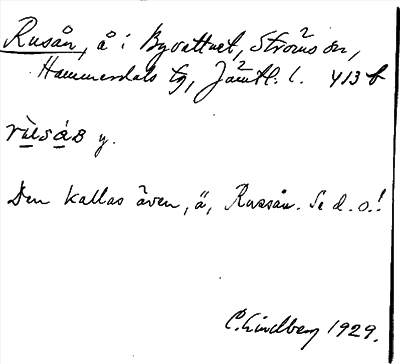 Rusån, å i Byvattnet, Ströms sn,
Hammerdals tg, Jämtl. l. 413 b
rùsɑ́n y.
Den kallas även, ä, Russån. Se d. o.!
C. Lindberg 1929.